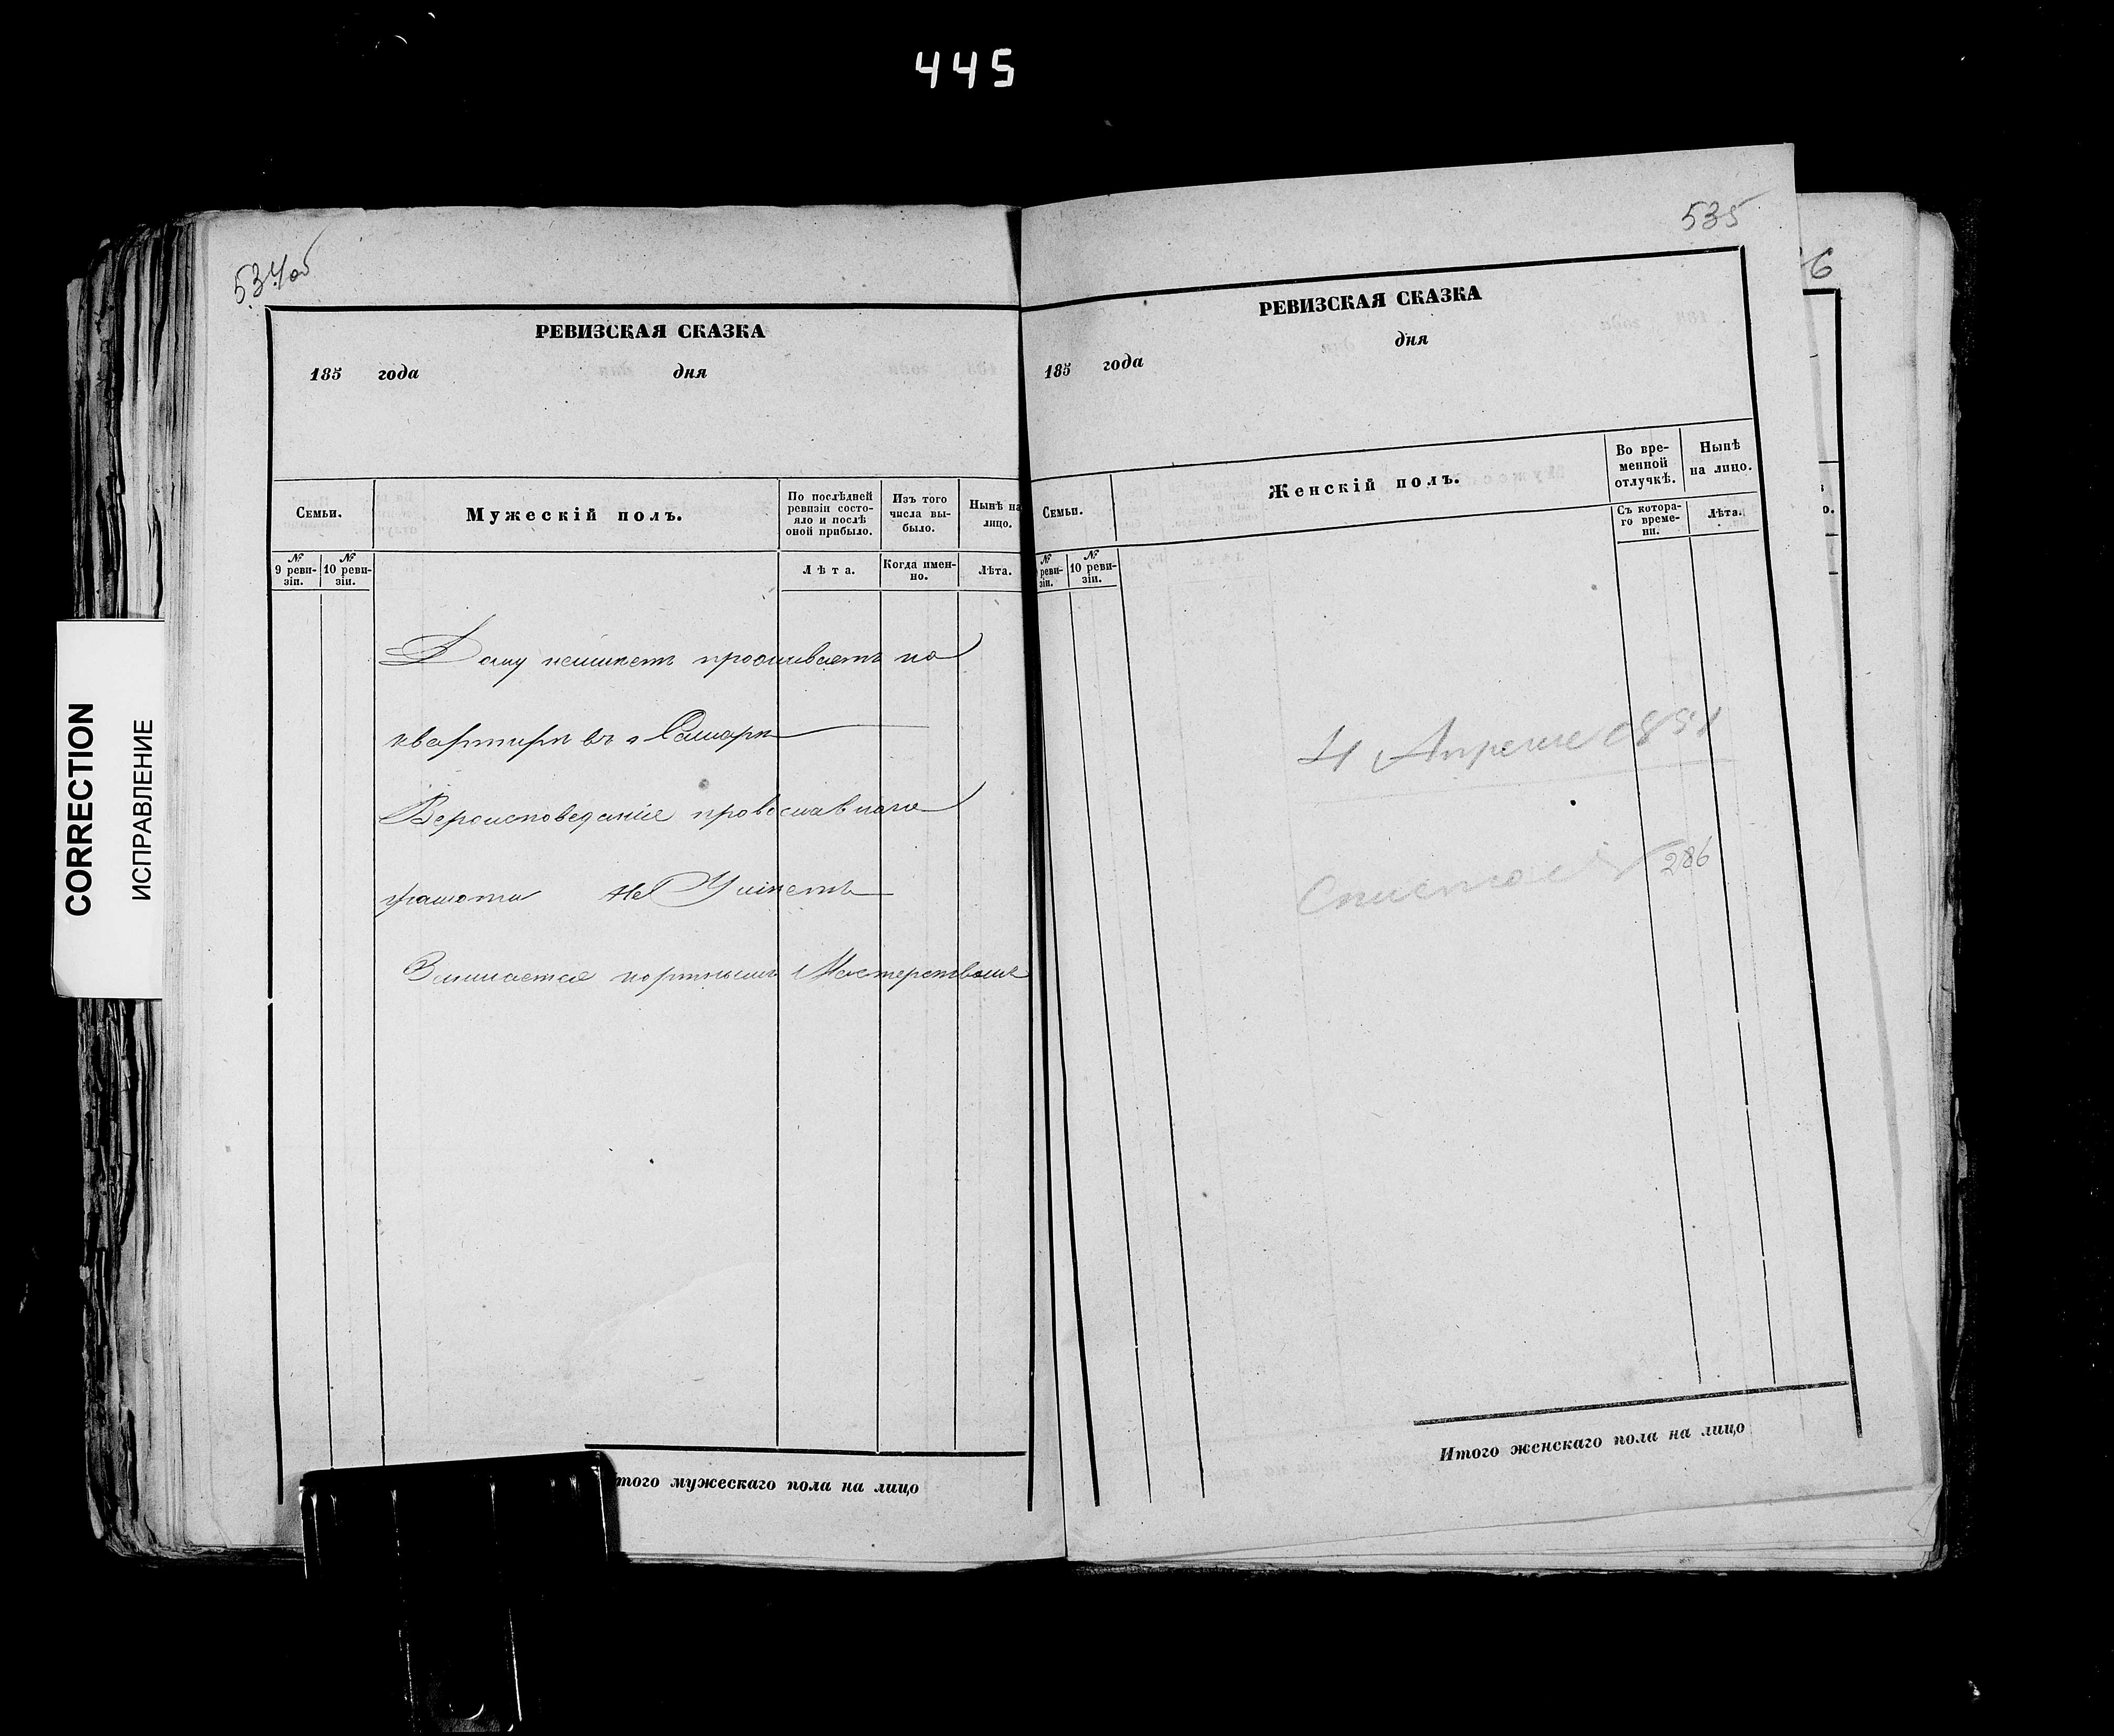 445
534об
РЕВИЗСКАЯ СКАЗКА
185 года дня
Семьи.
Мужескій полъ.
По послѣдней ревизіи состо-
яло и послѣ
оной прибыло.
Изъ того
числа вы-
было.
Нынѣ на
лицо.
№
9 реви-
зіи.
№
10 реви-
зіи.
Лѣта.
Когда имен-
но.
Лѣта.
Дому неимѣетъ проживаетъ на
квартирѣ въ г Самарѣ
Вероисповеданіе православнаго
грамоти не Умѣетъ
Занимается портнымъ Мастерствомъ
того мужескаго пола на лицо
CORRECTION
ИСПРАВЛЕНИЕ
535
РЕВИЗСКАЯ СКАЗКА
185 года дня
Семьи.
Женскій полъ.
Во вре-
менной
отлучкѣ.
Нынѣ
на лицо.
№
реви-
зіи.
№
10 реви-
зіи.
Съ котора-
го време-
ни.
Лѣта.
4 Апреля
286
Итого женскаго пола на лицо
6